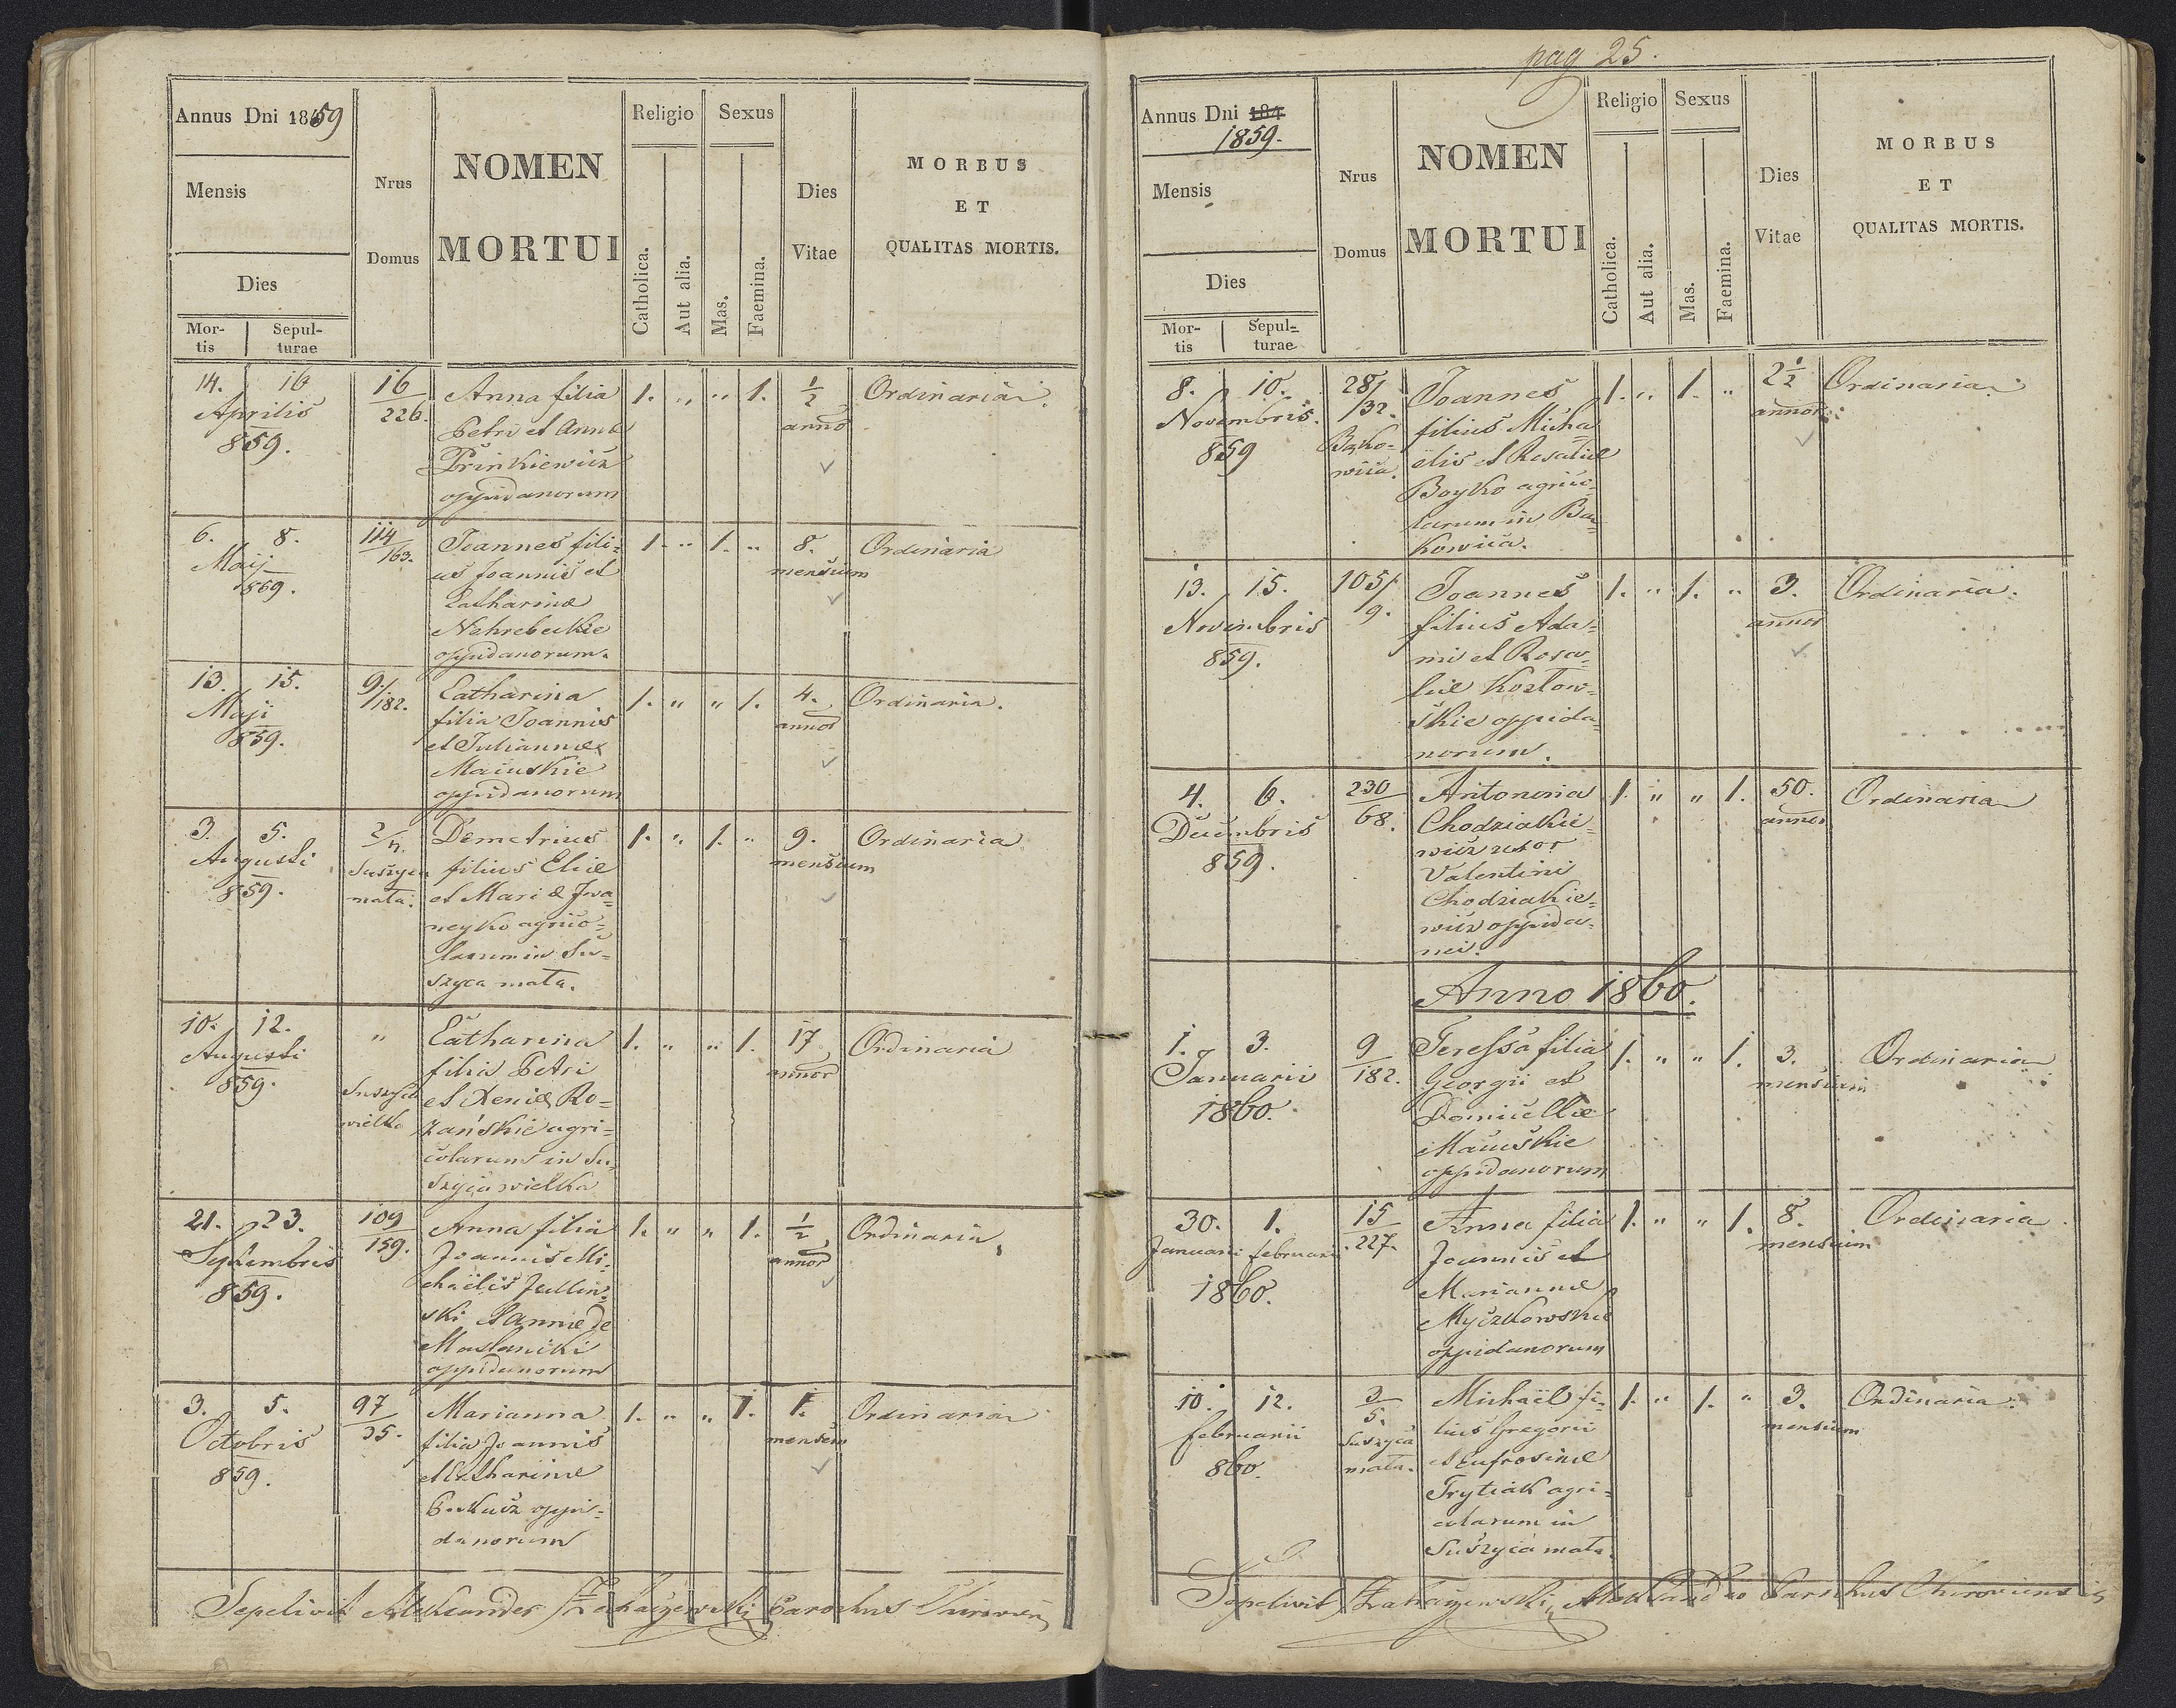 Annus Dni 1859
Mensis
Dies
Mor-
tis
Sepul-
turae
Nrus
Domus
NOMEN
MORTUI
Religio
Catholica.
Aut alia.
Sexus
Mas.
Faemina.
Dies
Vitae
MORBUS
ET
QUALITAS MORTIS.
14. 16
Aprilis
859.
16
226.
Anna filia
Petri et Annæ
oppidanorum
1. " " 1.
1/2
anno
Ordinaria.
6. 8.
Maij
859.
114
163.
Joannes fili=
us Joannis et
Catharinæ
Nahrebeckie
oppidanorum.
1. " 1. "
8.
mensium
Ordinaria
13. 15.
Maji
859.
9/
182.
Catharina
filia Joannis
et Juliannæ
oppidanorum
1. " " 1.
4.
annor
Ordinaria.
3. 5.
Augusti
859.
Suszyca
mała.
Demetrius
filius Eliæ
et Mariæ Iwa=
neyko agrico=
larum in Su=
szyca mała.
1. " 1. "
9.
mensium
Ordinaria
10. 12.
Augusti
859.
"
Suszyca
wielka
Catharina
filia Petri
et Xeniæ Ro=
zańskie agri=
colarum in Su=
szyca wielka
1. " " 1.
17
annor
Ordinaria
21. 23.
Septembris
859.
109
159.
Anna filia
Joannis Mi=
chaelis
ski et Annæ de
oppidanorum
1. " " 1.
1/2
annor
Ordinaria
3. 5.
Octobris
859.
97
35.
Marianna
filia Joannis
et Catharinæ
oppi=
danorum
1. " " 1.
1.
mensem
Ordinaria
Sepelivit Aleksander Parochus
pag 25.
Annus Dni 184
1859.
Mensis
Dies
Mor-
tis
Sepul-
turae
Nrus
Domus
NOMEN
MORTUI
Religio
Catholica.
Aut alia.
Sexus
Mas.
Faemina.
Dies
Vitae
MORBUS
ET
QUALITAS MORTIS.
8. 10.
Novembris.
859
28/
132.
Joannes
filius Micha
elis et Rosaliæ
Boyko agrico=
larum in
kowica.
1. " 1. "
2 1/2
annor
Ordinaria.
13. 15.
Novembris
859.
105/
9.
Joannes
filius Ada=
mi et Rosa=
liæ Kozłow=
skie oppida=
norum.
1. " 1. "
3.
annor
Ordinaria.
4. 6.
Decembris
859.
230
68.
Antonina
Chodziakie=
wicz uxor
Valentini
Chodziakie=
wicz oppida=
ni.
1. " " 1.
50.
annor
Ordinaria
Anno 1860.
1. 3.
Januarii
1860.
9
182.
Teressa filia
Georgii et
Domicellæ
oppidanorum
1. " " 1.
3.
mensium
Ordinaria
30. 1.
Januarii februarii
1860.
15
227.
Anna filia
Joannis et
Mariannæ
Myczkowskie
oppidanorum
1. " " 1.
8.
mensium
Ordinaria.
10. 12.
februarii
860.
3
5.
Suszyca
mała.
Michaël fi=
lius Gregorii
et Eufrosinæ
Trytiak agri=
colarum in
Suszyca mała.
1. " 1. "
3.
mensium
Ordinaria.
Sepelivit Parochus